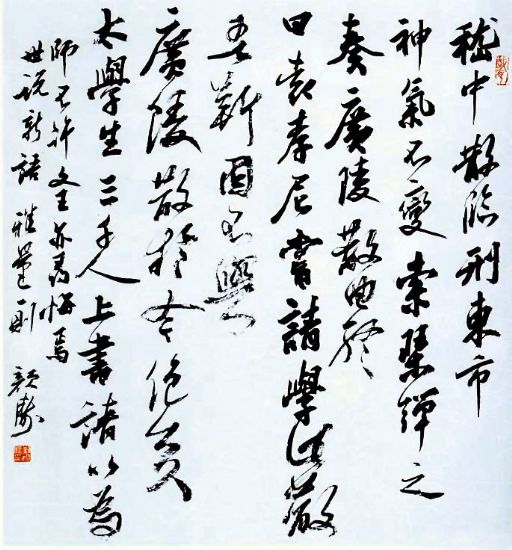 嵇中散臨刑東市
神氣不變索琴彈之
奏廣陵散曲終
曰袁孝尼嘗請學此散
吾靳固不與
廣陵散於今絕矣
太學生三千人上書請以為
師不許文王亦尋悔焉
世說新語 雅量一則